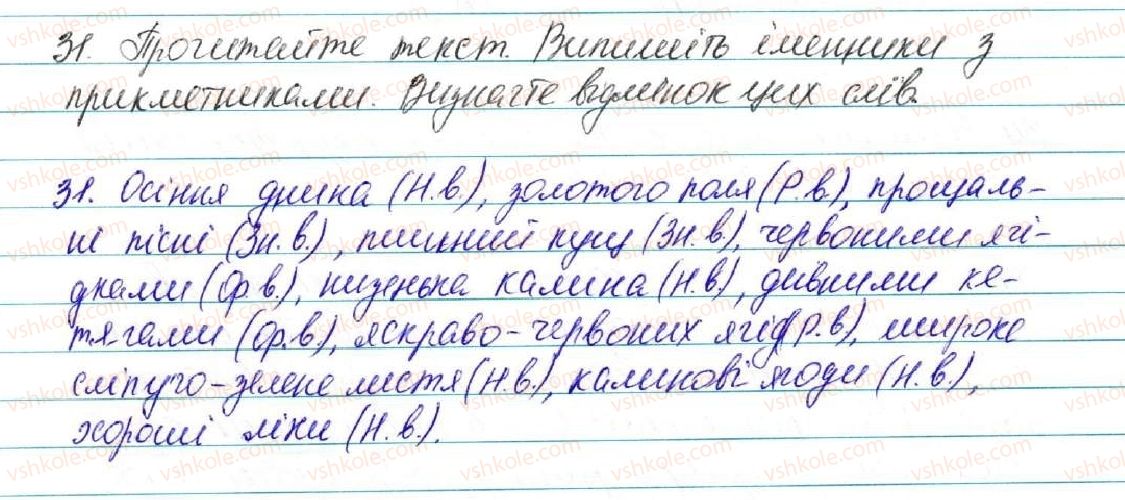 31. Прочитайте текст. Випишіть іменники з
прикметниками. Визначте відмінок цих слів.
31. Осіння днина (Н.в.), золотого поля (Р.в.), прощаль-
ні пісні (Зн.в.), пишний кущ (Зн.в.), червоними ягі-
дками (Ор.в.), низенька калина (Н.в.), дивними ке-
тягами (Ор.в), яскраво-червоних ягід (Р.в), широке
сліпучо-зелене листя (Н.в.), калинові ягоди (Н.в.),
хороші ліки (Н.в.).